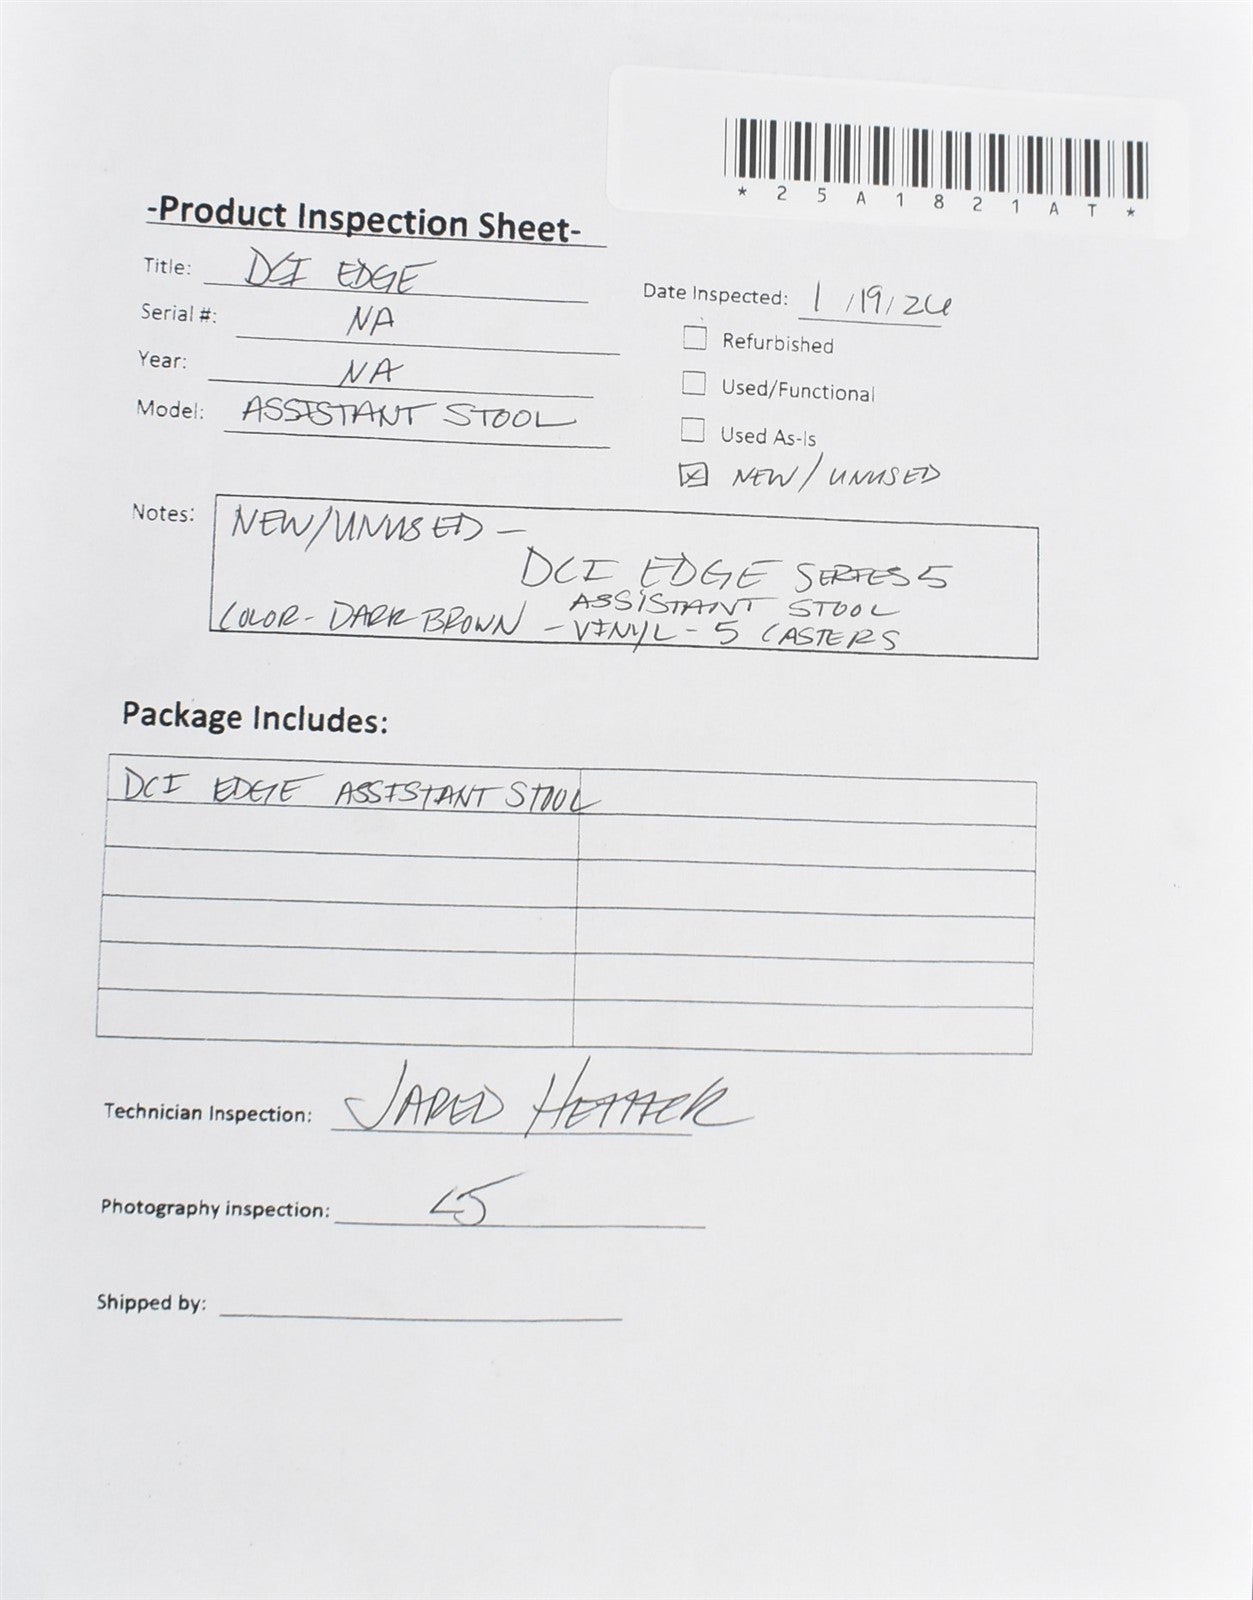 *25A1821AT*
-Product Inspection Sheet-
Title: DCI EDGE
Date Inspected: 1/19/26
Serial #: NA
Refurbished
Year: NA
Used/Functional
Model: ASSISTANT STOOL
Used As-Is
NEW/UNUSED
Notes: NEW/UNUSED -
DCI EDGE SERIES 5
ASSISTANT STOOL
COLOR - DARK BROWN - VINYL - 5 CASTERS
Package Includes:
DCI EDGE ASSISTANT STOOL
Technician Inspection: JARED
Photography inspection:
Shipped by: